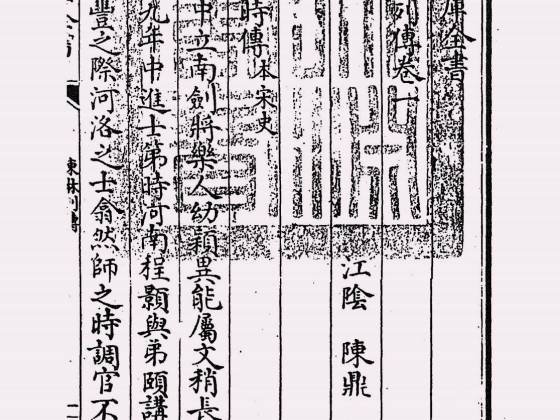 庫全書
列傳卷一
江陰 陳鼎
時傳本宋史
中立南劍將樂人幼穎異能屬文稍長
九年中進士第時河南程顥與弟頤講
豐之際河洛之士翕然師之時調官不
東林列傳